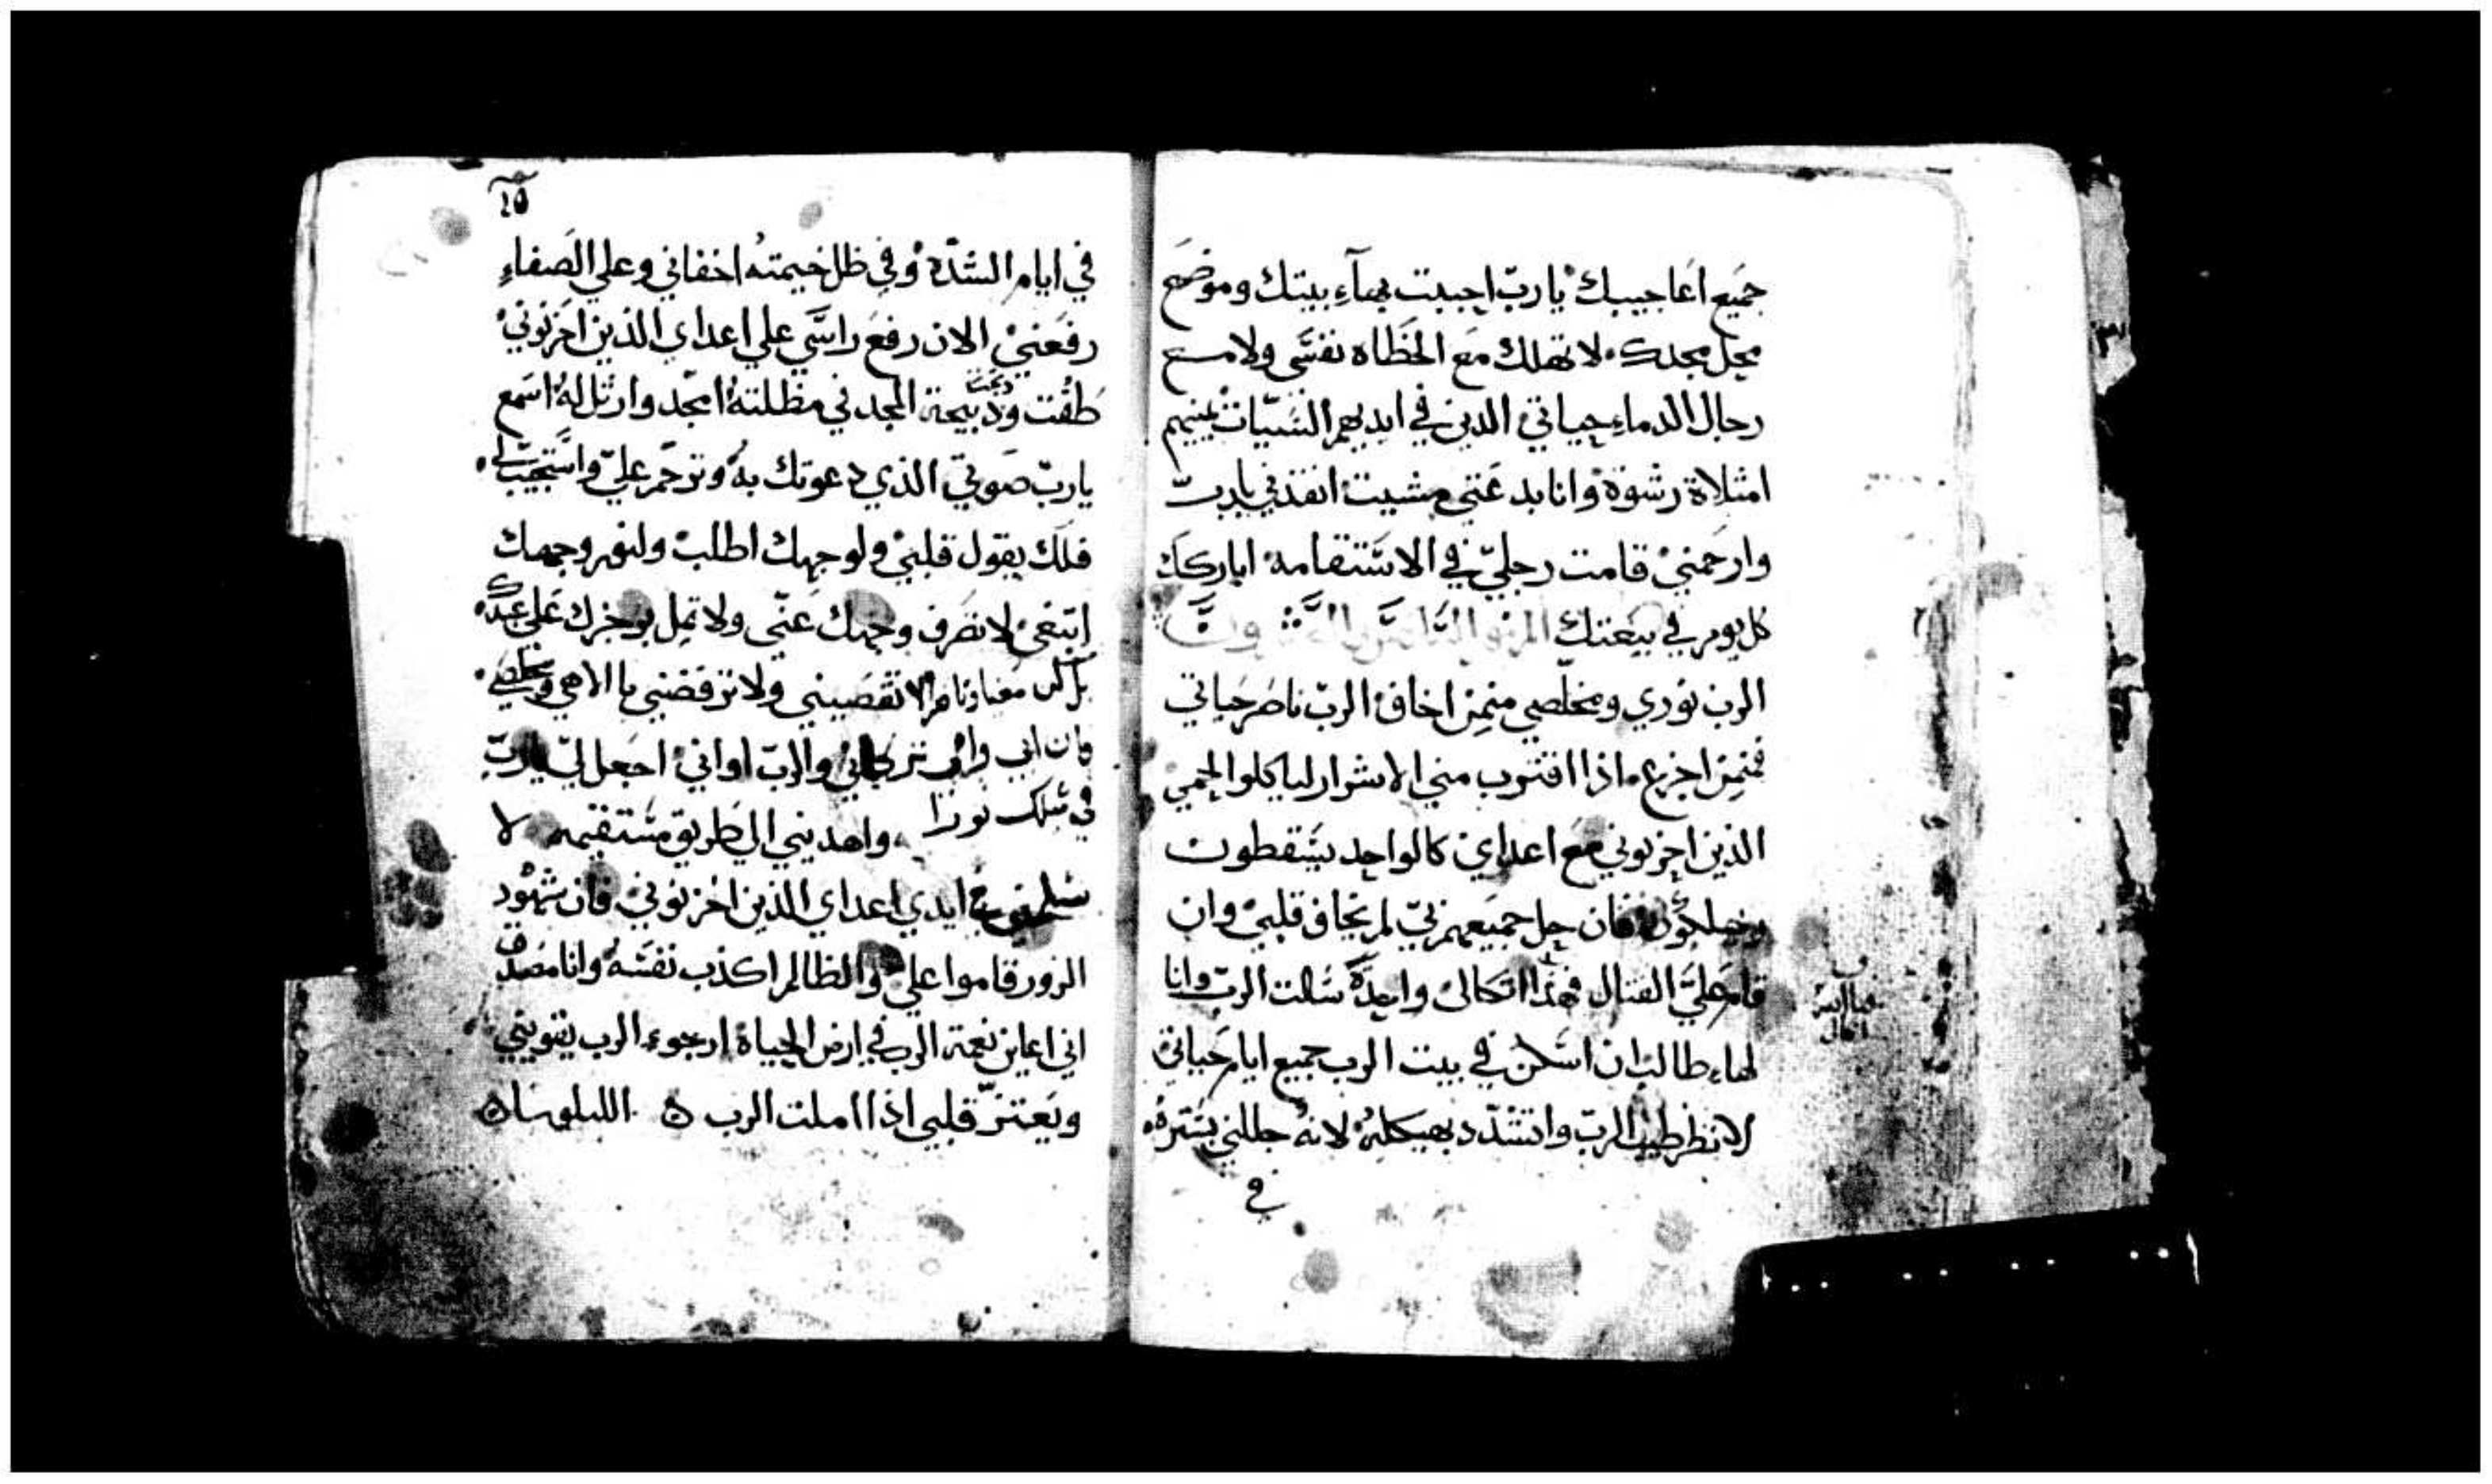 جميع اعاجيبك يا رب احببت بهآء بيتك وموضع
محل مجدك لا تهلك مع الخطاه نفسي ولا مع
رجال الدماء حياتي الدين في ايديهم السيات يمينهم
امتلاة رشوة وانا بدعتي مشيت انقذني يا رب
وارحمني قامت رجلي في الاستقامه اباركك
كل يوم في بيعتك
الرب نوري ومخلصي منمن اخاف الرب ناصر حياتي
فمنمن اجزع اذا اقترب مني الاشرار لياكلوا لحمي
الذين احزنوني مع اعداي كالواحد يسقطون
فان حل جميعهم بي لم يخاف قلبي وان
قام علي القتال فهذا اتكالى واحدة سالت الرب وانا
لها طالب ان اسكن في بيت الرب جميع ايام حياتي
لانظر طيب الرب واتشدد بهيكله لانه جللني بستره
في
٢٥
في ايام الشدة وفي ظل خيمته اخفاني وعلي الصفاء
رفعني الان رفع راسي علي اعداي الذين احزنوني
طفت وذبيحة المجد في مظلته امجد وارتل له اسمع
يا رب صوتي الذي دعوتك به وترحم علي واستجيب لي
فلك يقول قلبي ولوجهك اطلب ولنور وجهك
ابتغي لا تصرف وجهك عني ولا تمل بوخرك علي عبدك
بل كن لا تقصيني ولا ترفضني يا الاهي ومخلصي
فان ابي وامي تركاني والرب اواني اجعل لي يا رب
في سبلك نورا واهديني الي طريق مستقيمه لا
تسلمني ايدي اعداي الذين احزنوني فان شهود
الزور قاموا علي والظالم اكذب نفسه وانا مصدق
اني اعاين نعمة الرب في ارض الحياة ارجوء الرب يقويني
ويعتز قلبي اذا املت الرب الليلويا